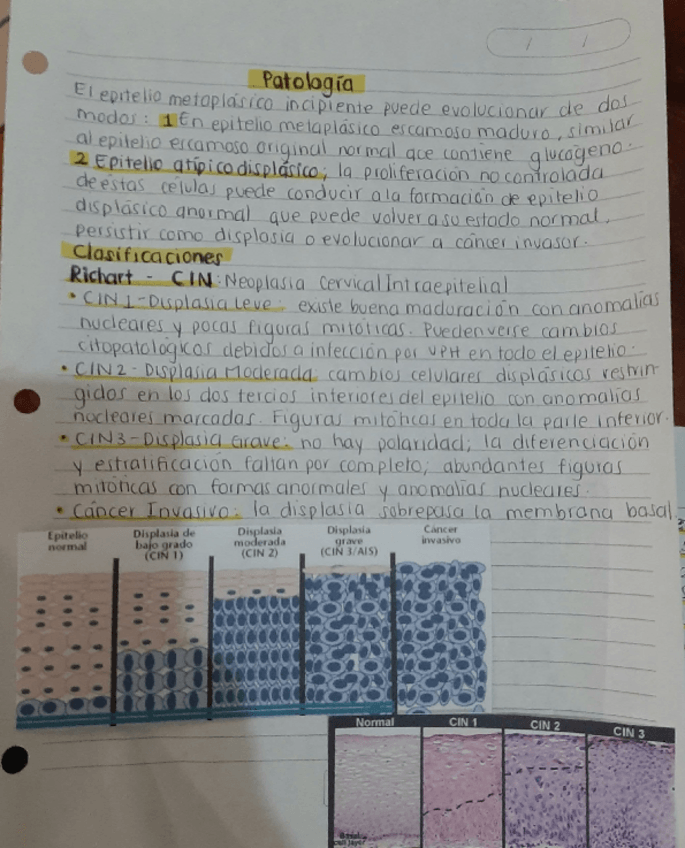 Patología
El epitelio metaplásico incipiente puede evolucionar de dos
modos: 1 En epitelio metaplásico escamoso maduro, similar
al epitelio escamoso original normal que contiene glucógeno.
2 Epitelio atípico displásico; la proliferación no controlada
de éstas células puede conducir a la formación de epitelio
displásico anormal que puede volver a su estado normal,
persistir como displasia o evolucionar a cáncer invasor.
Clasificaciones
Richart - CIN: Neoplasia Cervical Intraepitelial
• CIN 1 - Displasia Leve: existe buena maduración con anomalías
nucleares y pocas figuras mitóticas. Pueden verse cambios
citopatológicos debidos a infección por VPH en todo el epitelio.
• CIN 2 - Displasia Moderada: cambios celulares displásicos restrin-
gidos en los dos tercios inferiores del epitelio con anomalías
nucleares marcadas. Figuras mitóticas en toda la parte inferior.
• CIN3 - Displasia Grave: no hay polaridad; la diferenciación
y estratificación faltan por completo; abundantes figuras
mitóticas con formas anormales y anomalías nucleares.
• Cáncer Invasivo: la displasia sobrepasa la membrana basal.
Epitelio
normal
Displasia de
bajo grado
(CIN 1)
Displasia
moderada
(CIN 2)
Displasia
grave
(CIN 3/AIS)
Cáncer
invasivo
Normal
CIN 1
CIN 2
CIN 3
Basal
cell layer